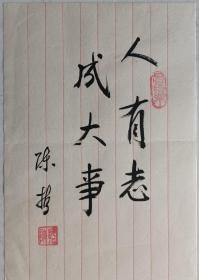 人有志
成大事
陈哲